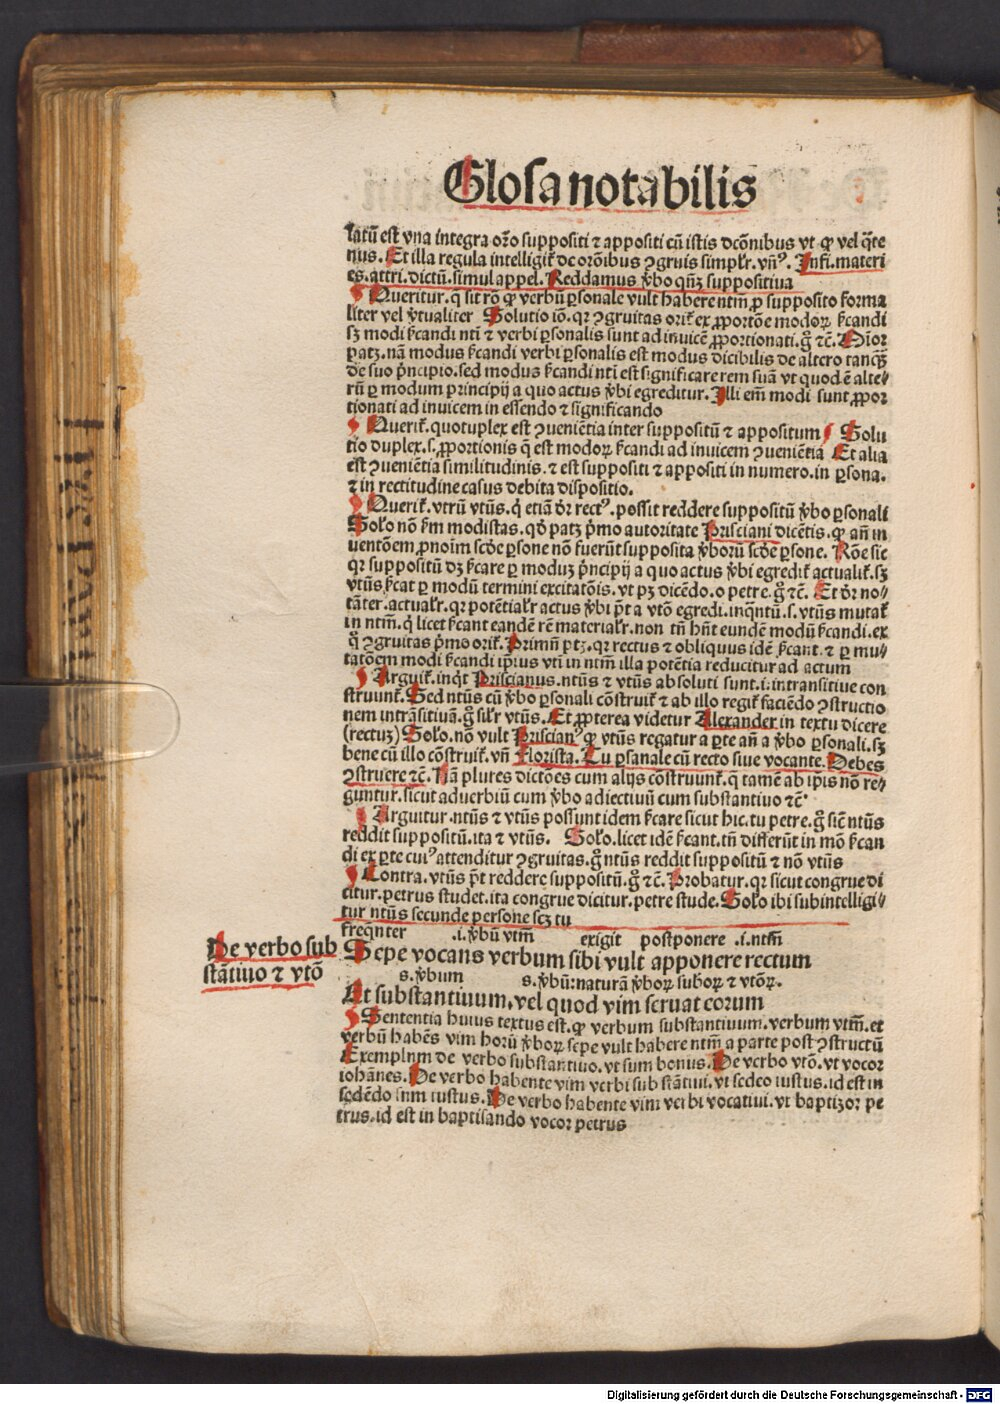 Glosa notabilis
latū est vna integra oro suppositi ⁊ appositi cū istis dcōnibus vt ꝙ vel q̄te
nus. Et illa regula intelligit̄ de orōibus ꝯgruis simplr̄. vn̄ꝰ. Infi. materi
es. attri. dictū. simul appel. Reddamus v̄bo qn̄qꝫ suppositiua
Queritur. q̄ sit rō ꝙ verbū ꝑsonale vult habere ntm̄ ꝓ supposito forma
liter vel v̄tualiter Solutio iō. qꝛ ꝯgruitas orit̄ ex ꝓportōe modoꝝ s̄candi
sꝫ modi s̄candi nti ⁊ verbi ꝑsonalis sunt ad inuicē ꝓportionati. gͦ ⁊c̄. Minor
patꝫ. nā modus s̄candi verbi ꝑsonalis est modus dicibilis de altero tanqꝫ
de suo p̄ncipio. sed modus s̄candi nti est significare rem suā vt quod ē alte⸗
rū ꝑ modum principij a quo actus v̄bi egreditur. Illi em̄ modi sunt ꝓpor
tionati ad inuicem in essendo ⁊ significando
Querit̄. quotuplex est ꝯueniētia inter suppositū ⁊ appositum Solu
tio duplex. s. ꝓportionis q̄ est modoꝝ s̄candi ad inuicem ꝯueniētia Et alia
est ꝯueniētia similitudinis. ⁊ est suppositi ⁊ appositi in numero. in ꝑsona.
⁊ in rectitudine casus debita dispositio.
Querit̄. vtrū vtūs. q̄ etiā dr̄ rectꝰ. possit reddere suppositū v̄bo ꝑsonali
Solo nō s̄m modistas. qd̄ patꝫ p̄mo autoritate Prisciani dicētis. ꝙ an̄ in
uentōem ꝓnoim scd̄e ꝑsone nō fuerūt supposita v̄borū scd̄e ꝑsone. Rōe sic
qꝛ suppositū dꝫ s̄care ꝑ modū p̄ncipij a quo actus v̄bi egredit̄ actualit̄. sꝫ
vtūs s̄cat ꝑ modū termini excitatōis. vt pꝫ dicēdo. o petre. gͦ ⁊c̄. Et dr̄ no⸗
tāter. actualr̄. qꝛ potētialr̄ actus v̄bi p̄t a vtō egredi. inq̄ntū. s. vtūs mutat̄
in ntm̄. q̄ licet s̄cant eandē rē materialr̄. non tn̄ hn̄t eundē modū s̄candi. ex
q̊ ꝯgruitas p̄mo orit̄. Primū ptꝫ. qꝛ rectus ⁊ obliquus idē s̄cant. ⁊ ꝑ mu⸗
tatōem modi s̄candi ip̄ius vti in ntm̄ illa potētia reducitur ad actum
Arguit̄. inqt̄ Priscianus. ntūs ⁊ vtūs absoluti sunt. i. intransitiue con
struunt̄. Sed ntūs cū v̄bo ꝑsonali cōstruit̄ ⁊ ab illo regit̄ faciēdo ꝯstructio
nem intrāsitiuā. gͦ silr̄ vtūs. Et ꝓpterea videtur Alexander in textu dicere
(rectuꝫ) Solo. nō vult Priscianꝰ ꝙ vtūs regatur a ꝑte an̄ a v̄bo ꝑsonali. sꝫ
bene cū illo cōstruit̄. vn̄ Florista. Tu ꝑsanale cū recto siue vocante. Debes
ꝯstruere ⁊c̄. Nā plures dictōes cum alijs cōstruunt̄. q̄ tamē ab ip̄is nō re⸗
guntur. sicut aduerbiū cum v̄bo adiectiuū cum substantiuo ⁊c̄
Arguitur. ntūs ⁊ vtūs possunt idem s̄care sicut hic. tu petre. gͦ sicut ntūs
reddit suppositū. ita ⁊ vtūs. Solo. licet idē s̄cant. tn̄ differūt in mō s̄can
di ex ꝑte cuiꝰ attenditur ꝯgruitas. gͦ ntūs reddit suppositū ⁊ nō vtūs
Contra. vtūs p̄t reddere suppositū. gͦ ⁊c̄. Probatur. qꝛ sicut congrue di
citur. petrus studet. ita congrue dicitur. petre stude. Solo ibi subintelligi⸗
tur ntūs secunde persone scꝫ tu
freq̄nter .i. v̄bū vtm̄ exigit postponere .i. ntm̄
De verbo sub
stātiuo ⁊ vtō
Sepe vocans verbum sibi vult apponere rectum
s. v̄bum s. v̄bū: naturā v̄boꝝ suboꝝ ⁊ vtōꝝ.
Et substantiuum. vel quod vim seruat eorum
Sententia huius textus est. ꝙ verbum substantiuum. verbum vtm̄. et
verbū habēs vim horū v̄boꝝ sepe vult habere ntm̄ a parte post ꝯstructū
Exemplum de verbo substantiuo. vt sum bonus. De verbo vtō. vt vocor
iohānes. De verbo habente vim verbi substātiui. vt sedeo iustus. id est in
sedēdo sum iustus. De verbo habente vim verbi vocatiui. vt baptizor pe
trus. id est in baptisando vocor petrus
Digitalisierung gefördert durch die Deutsche Forschungsgemeinschaft - DFG